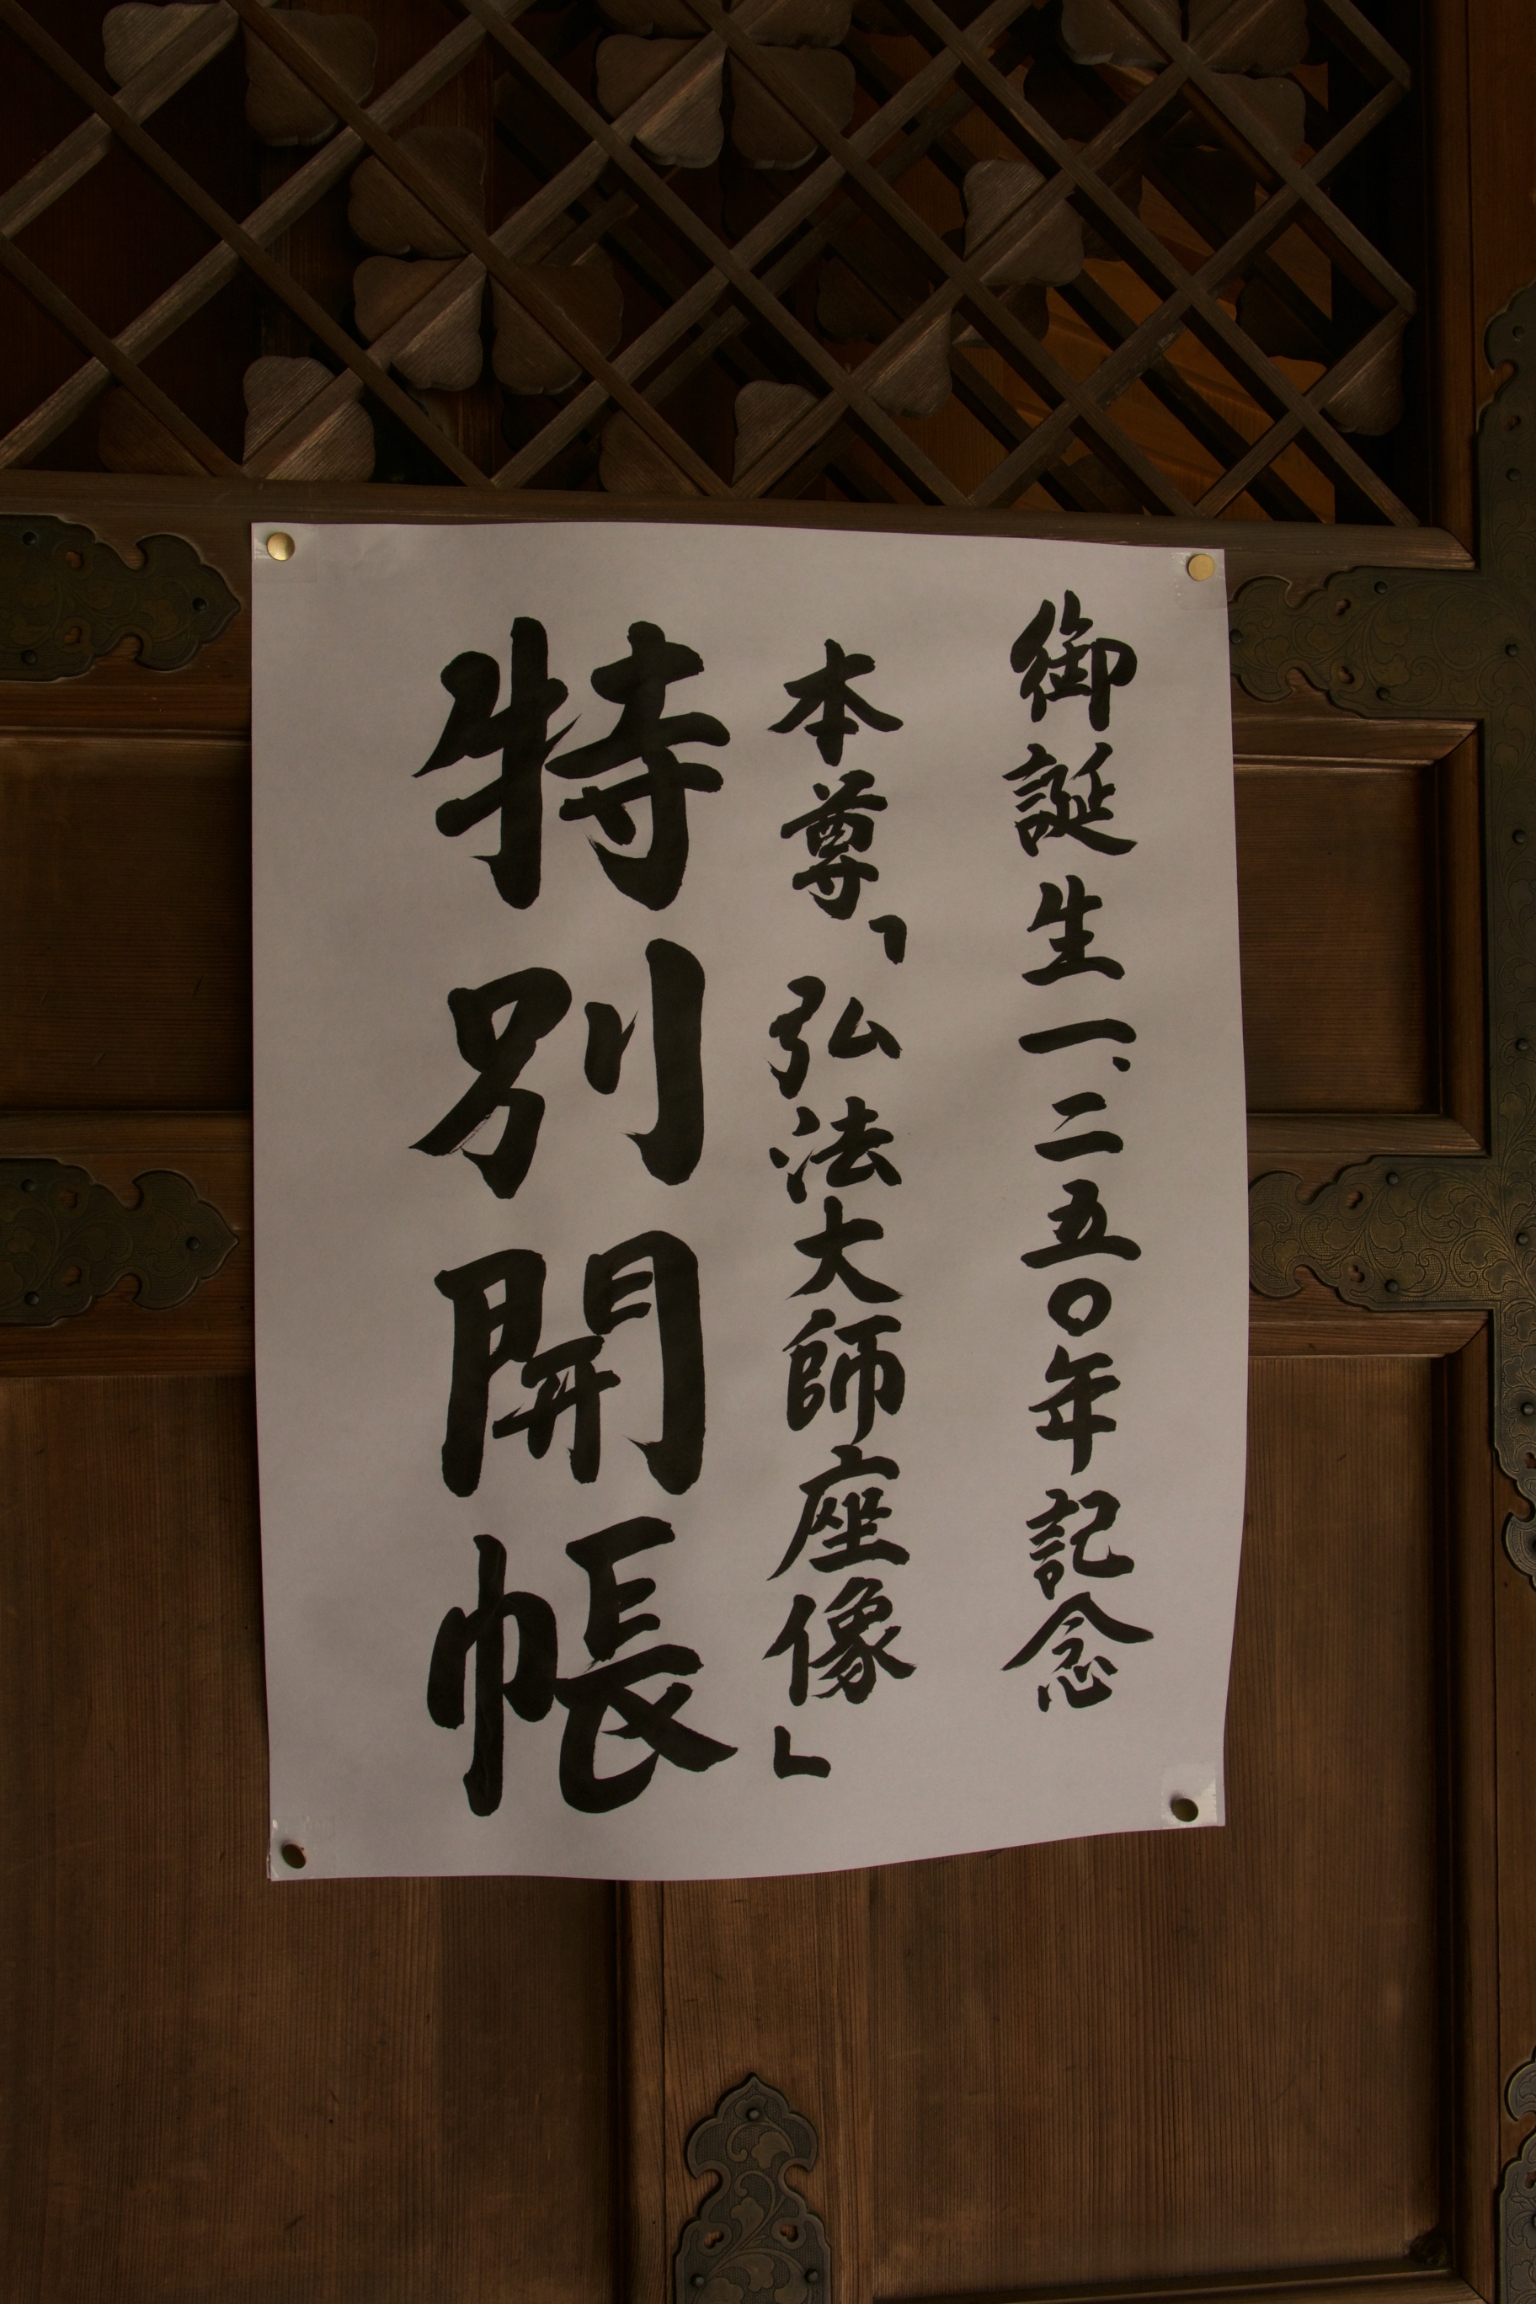 御誕生一、二五〇年記念
本尊「弘法大師座像」
特別開帳